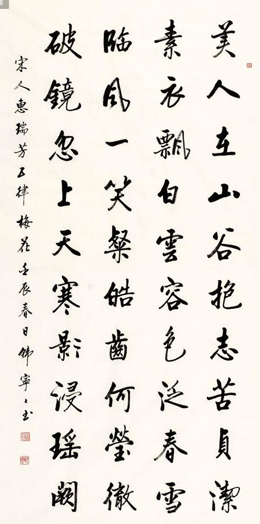 美人在山谷抱志苦貞潔
素衣飄白雲容色泛春雪
臨風一笑粲皓齒何瑩徹
破鏡忽上天寒影浸瑤闕
宋人惠瑞芳五律梅花壬辰春日佛寧之书